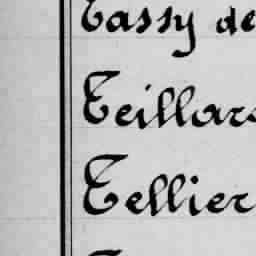 Tassy de
Teillars
Tellier